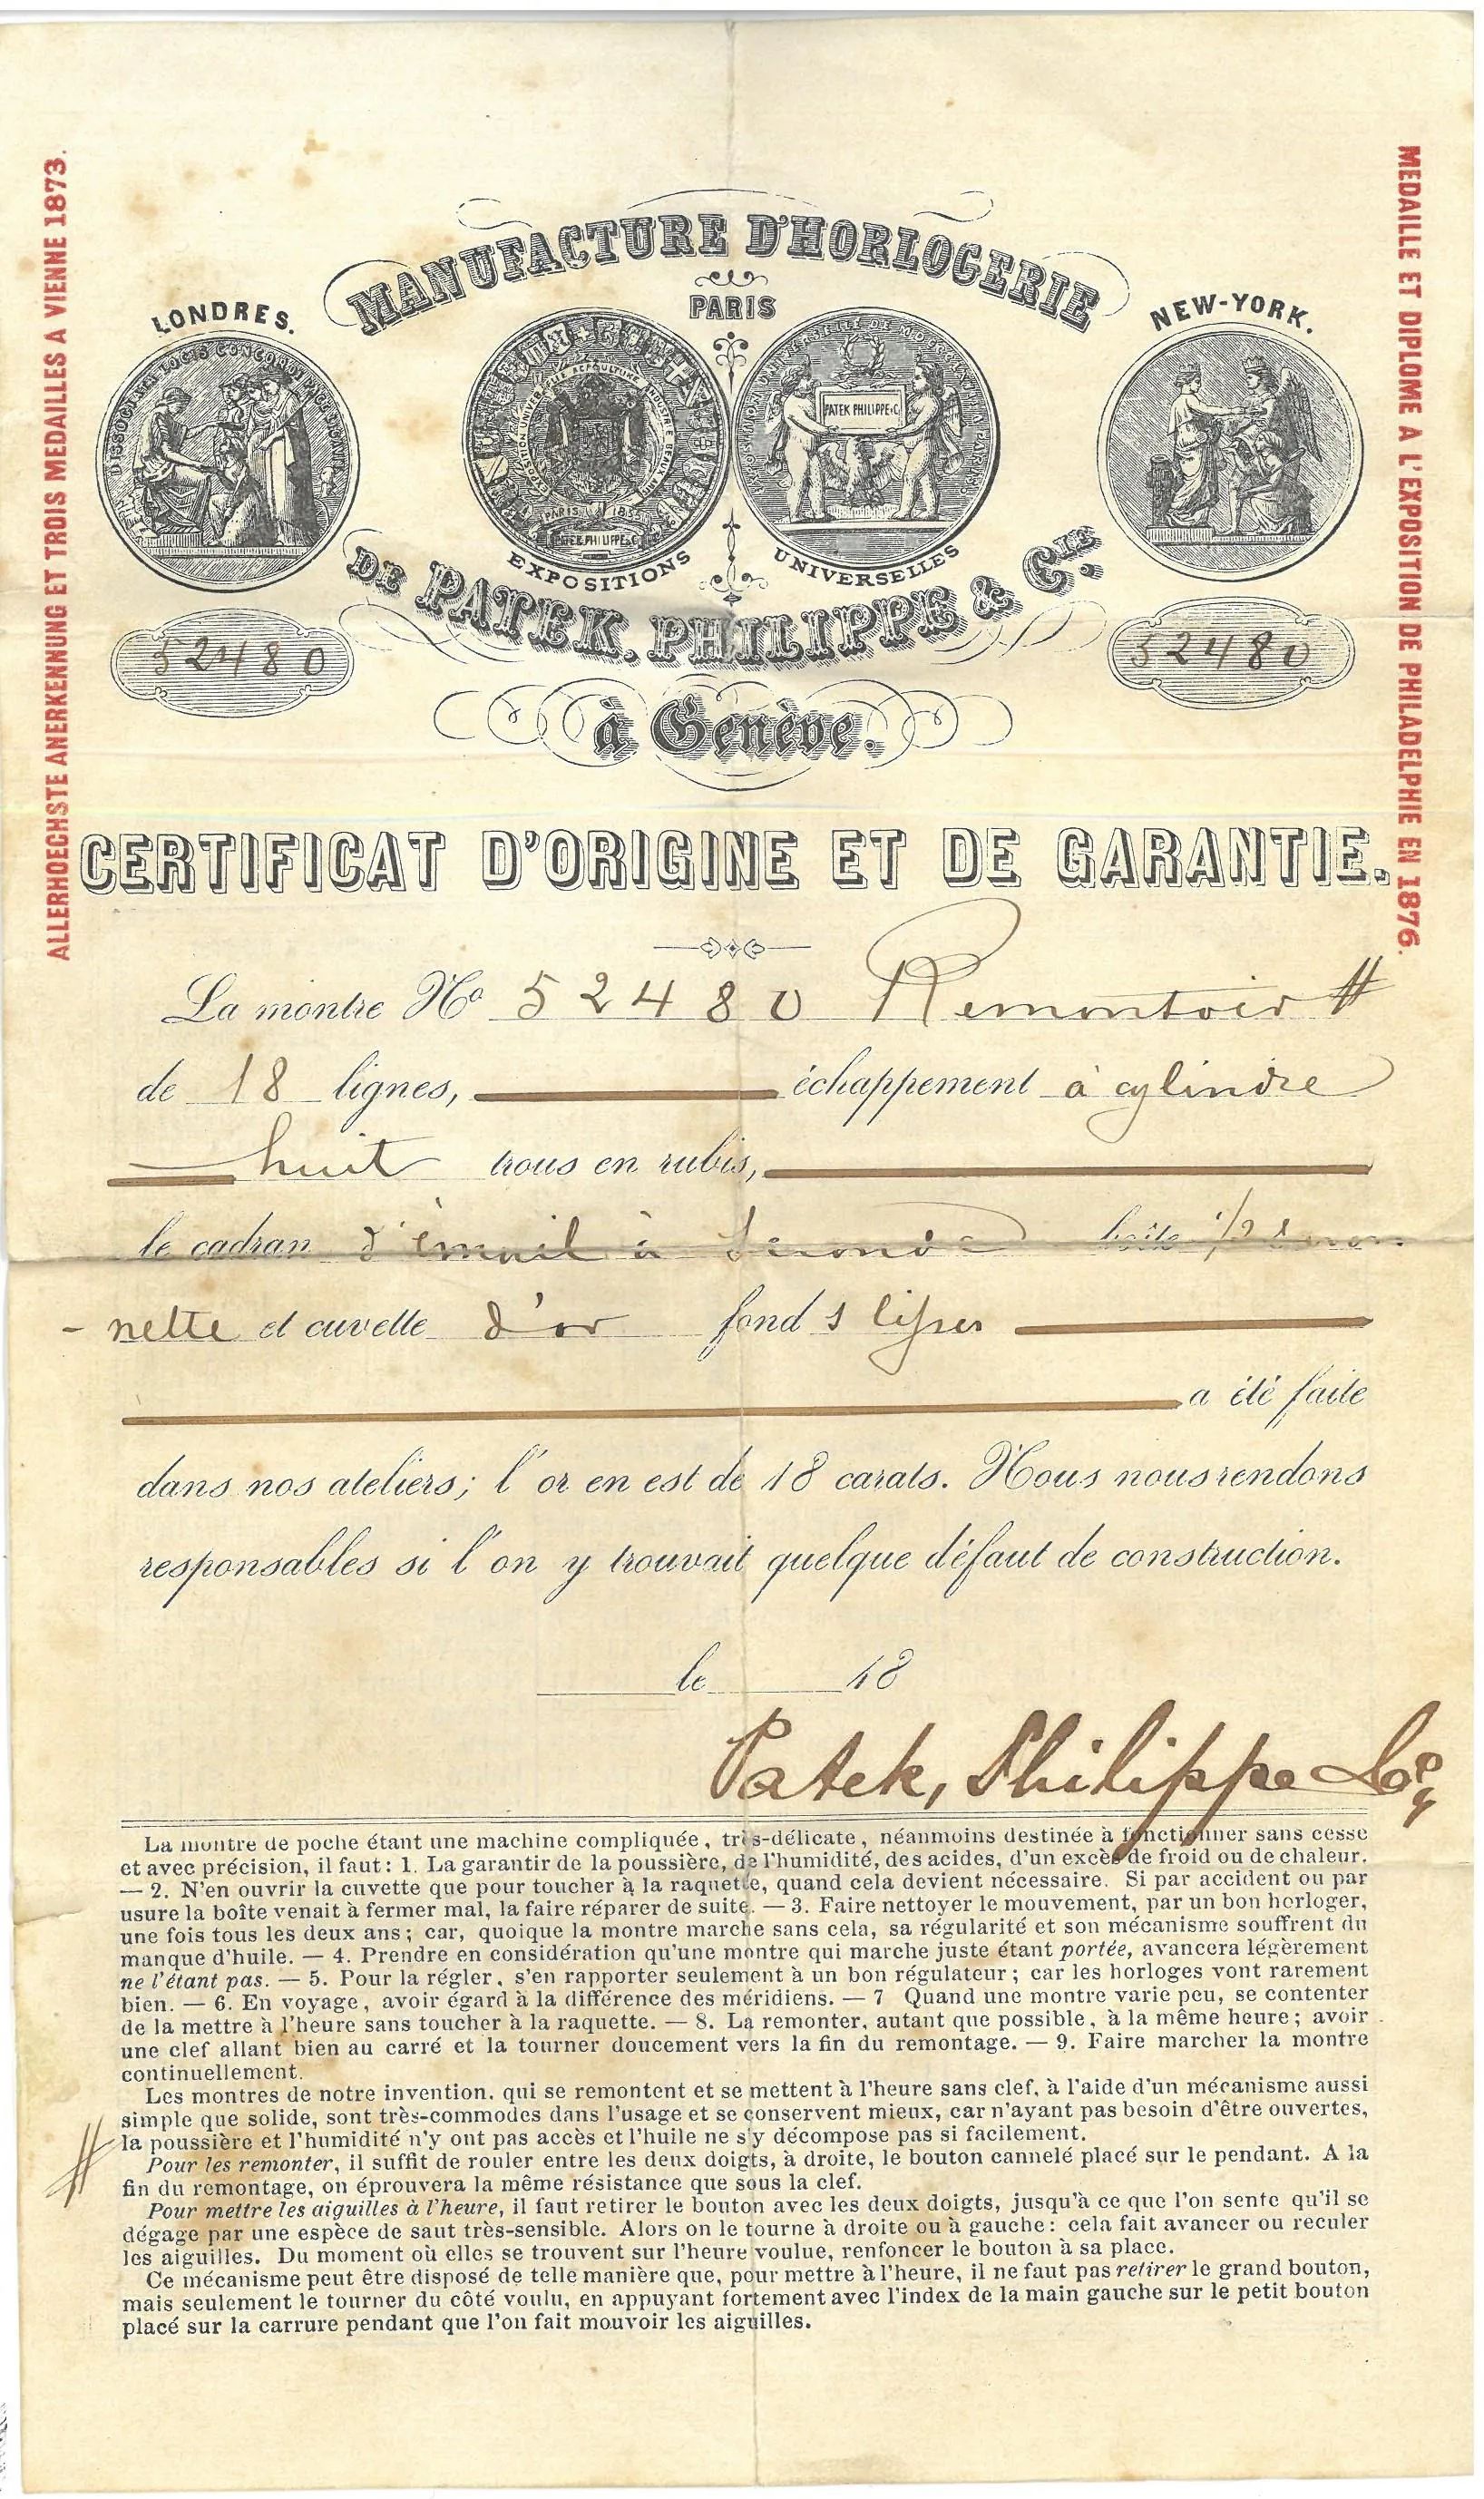 ALLERHOECHSTE ANERKENNUNG ET TROIS MEDAILLES A VIENNE 1873.
MEDAILLE ET DIPLOME A L'EXPOSITION DE PHILADELPHIE EN 1876.
MANUFACTURE D'HORLOGERIE
LONDRES.
PARIS
NEW-YORK.
PATEK PHILIPPE & C
PARIS 1855
EXPOSITIONS UNIVERSELLES
DE PATEK, PHILIPPE & Cie.
52480
52480
à Genève.
CERTIFICAT D'ORIGINE ET DE GARANTIE.
La montre No 52480 Remontoir #
de 18 lignes, échappement à cylindre
huit trous en rubis,
le cadran d'émail à seconde boîte 1/2 savon-
-nette et cuvette d'or fonds lisses
a été faite
dans nos ateliers; l'or en est de 18 carats. Nous nous rendons
responsables si l'on y trouvait quelque défaut de construction.
le 18
Patek, Philippe & Co
La montre de poche étant une machine compliquée, très-délicate, néanmoins destinée à fonctionner sans cesse
et avec précision, il faut: 1. La garantir de la poussière, de l'humidité, des acides, d'un excès de froid ou de chaleur.
— 2. N'en ouvrir la cuvette que pour toucher à la raquette, quand cela devient nécessaire. Si par accident ou par
usure la boîte venait à fermer mal, la faire réparer de suite. — 3. Faire nettoyer le mouvement, par un bon horloger,
une fois tous les deux ans; car, quoique la montre marche sans cela, sa régularité et son mécanisme souffrent du
manque d'huile. — 4. Prendre en considération qu'une montre qui marche juste étant portée, avancera légèrement
ne l'étant pas. — 5. Pour la régler, s'en rapporter seulement à un bon régulateur; car les horloges vont rarement
bien. — 6. En voyage, avoir égard à la différence des méridiens. — 7 Quand une montre varie peu, se contenter
de la mettre à l'heure sans toucher à la raquette. — 8. La remonter, autant que possible, à la même heure; avoir
une clef allant bien au carré et la tourner doucement vers la fin du remontage. — 9. Faire marcher la montre
continuellement.
Les montres de notre invention, qui se remontent et se mettent à l'heure sans clef, à l'aide d'un mécanisme aussi
simple que solide, sont très-commodes dans l'usage et se conservent mieux, car n'ayant pas besoin d'être ouvertes,
# la poussière et l'humidité n'y ont pas accès et l'huile ne s'y décompose pas si facilement.
Pour les remonter, il suffit de rouler entre les deux doigts, à droite, le bouton cannelé placé sur le pendant. A la
fin du remontage, on éprouvera la même résistance que sous la clef.
Pour mettre les aiguilles à l'heure, il faut retirer le bouton avec les deux doigts, jusqu'à ce que l'on sente qu'il se
dégage par une espèce de saut très-sensible. Alors on le tourne à droite ou à gauche: cela fait avancer ou reculer
les aiguilles. Du moment où elles se trouvent sur l'heure voulue, renfoncer le bouton à sa place.
Ce mécanisme peut être disposé de telle manière que, pour mettre à l'heure, il ne faut pas retirer le grand bouton,
mais seulement le tourner du côté voulu, en appuyant fortement avec l'index de la main gauche sur le petit bouton
placé sur la carrure pendant que l'on fait mouvoir les aiguilles.